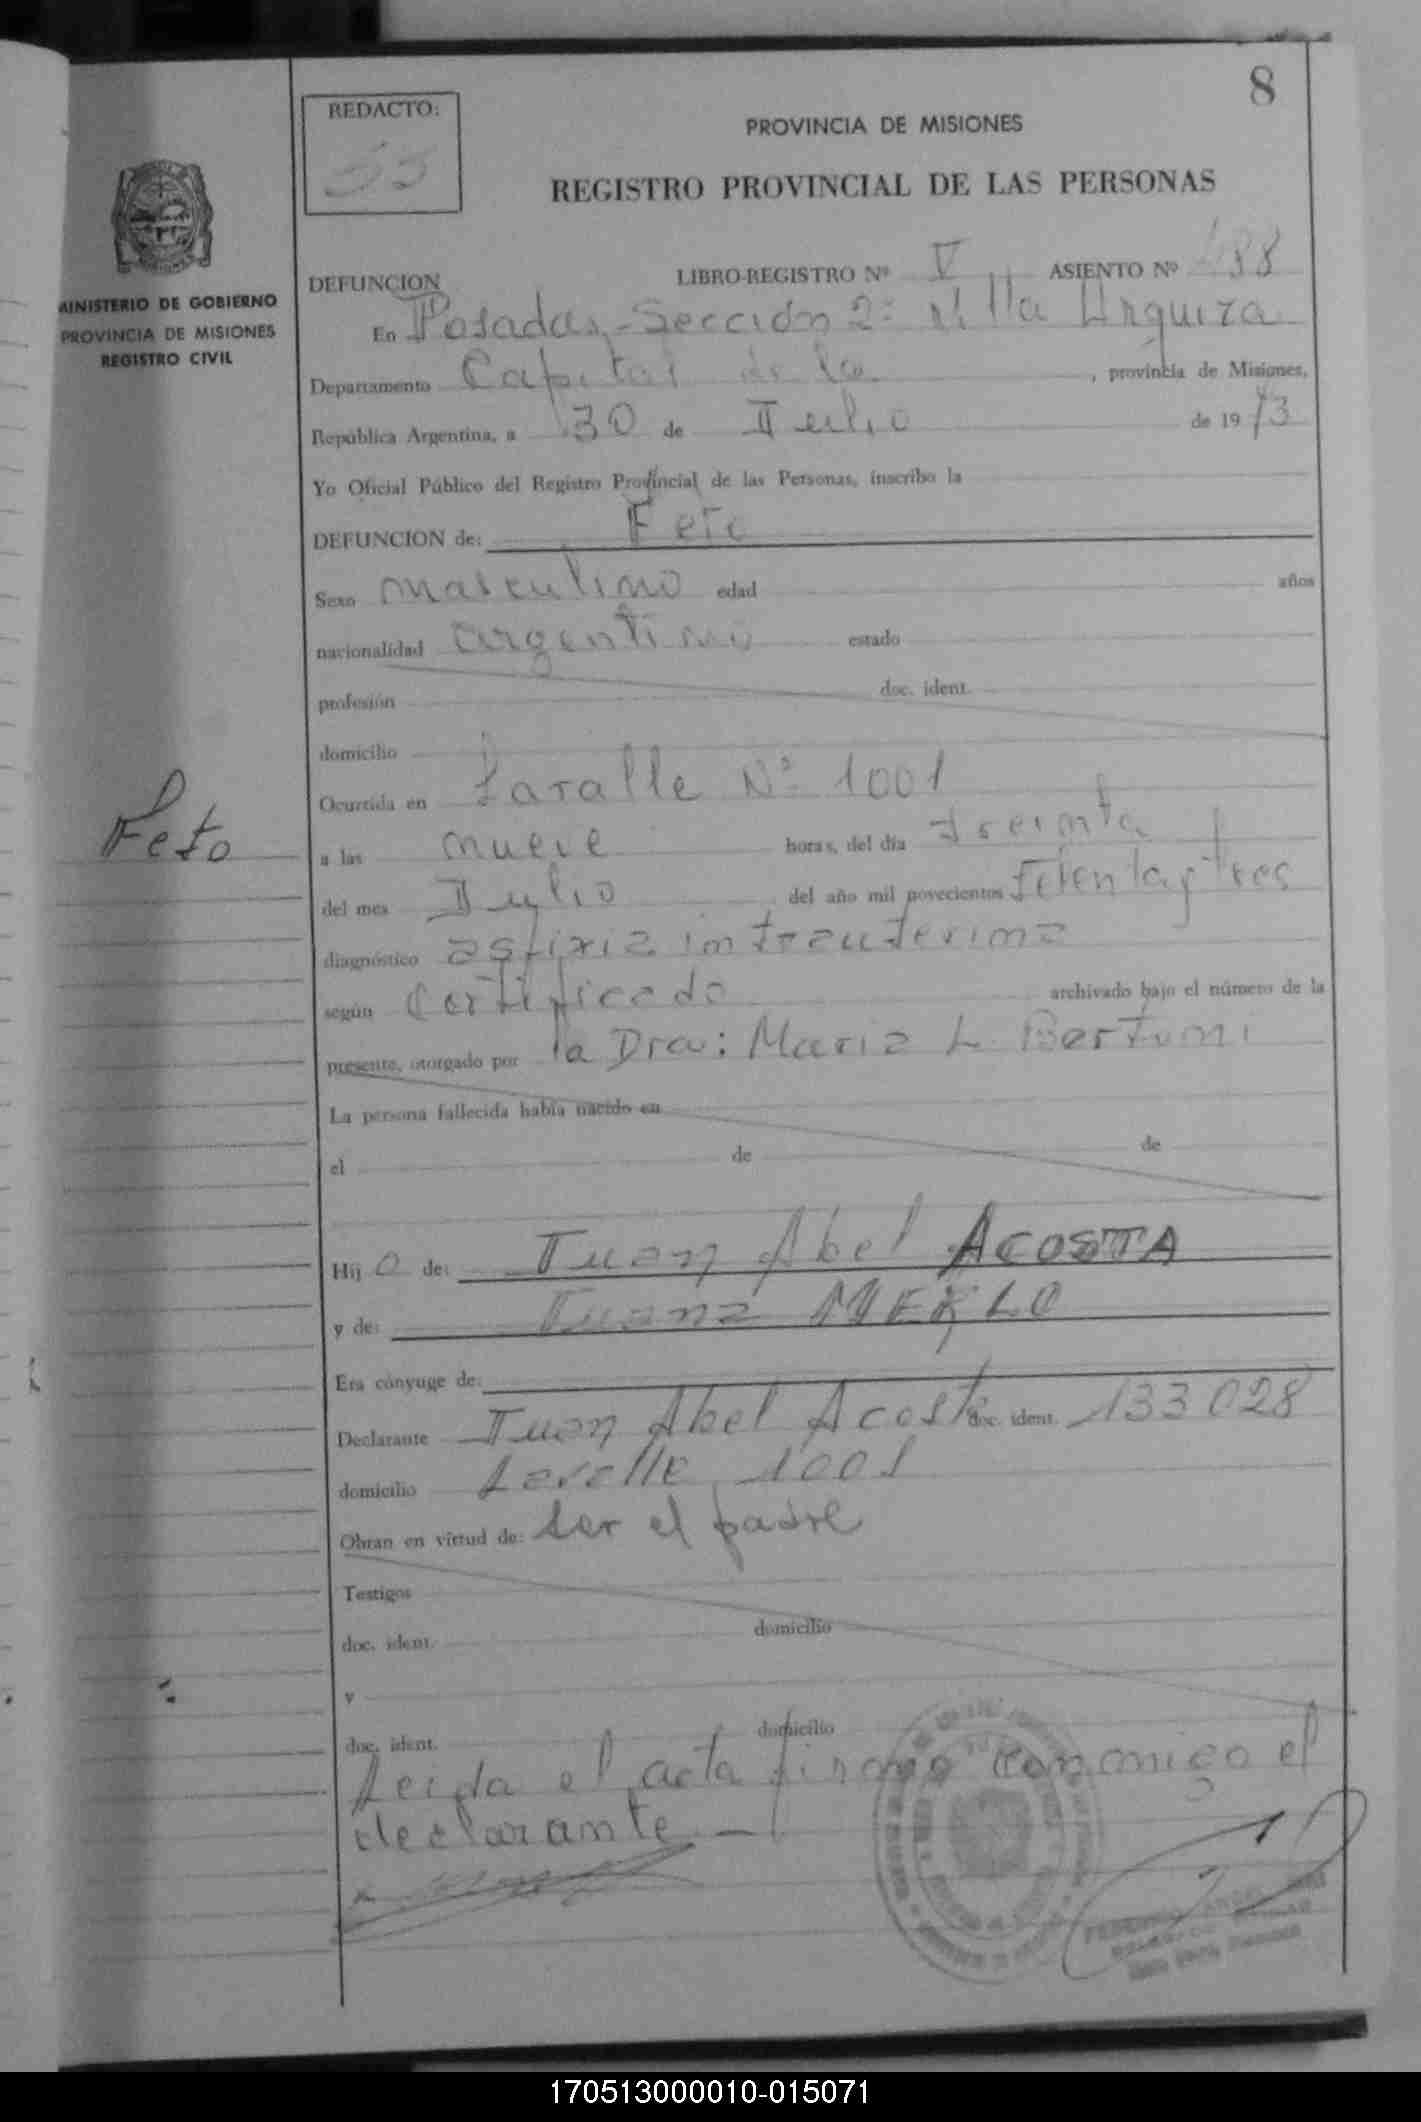 8
REDACTO:
PROVINCIA DE MISIONES
REGISTRO PROVINCIAL DE LAS PERSONAS
MINISTERIO DE GOBIERNO
PROVINCIA DE MISIONES
REGISTRO CIVIL
DEFUNCION
LIBRO-REGISTRO Nº V ASIENTO Nº 488
En Posadas, - Sección 2ª Villa Urquiza
Departamento Capital de la, provincia de Misiones,
República Argentina, a 30 de Julio de 1973
Yo Oficial Público del Registro Provincial de las Personas, inscribo la
DEFUNCION de: Feto
Sexo masculino edad años
nacionalidad argentino estado
profesión doc. ident.
domicilio
Ocurrida en Lavalle Nº 1001
Feto
a las nueve horas, del día treinta
del mes Julio del año mil novecientos setenta y tres
diagnóstico asfixia intrauterina
según Certificado archivado bajo el número de la
presente, otorgado por la Dra: Maria L. Bertoni
La persona fallecida había nacido en
el de de
Hijo de: Juan Abel ACOSTA
y de: Juana MERLO
Era cónyuge de:
Declarante Juan Abel Acosta doc. ident. 133028
domicilio Lavalle 1001
Obran en virtud de: ser el padre
Testigos
doc. ident. domicilio
y
doc. ident. domicilio
Leida el acta firma conmigo el
declarante -
170513000010-015071